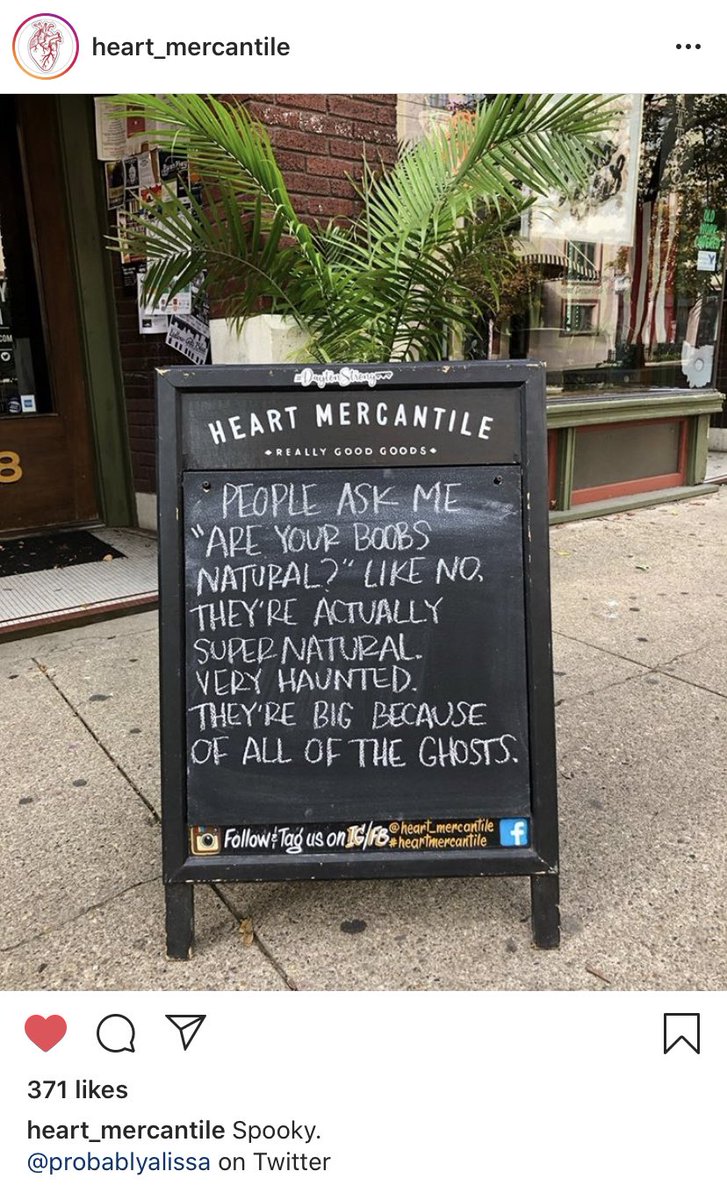 heart_mercantile
#DaytonStrong
HEART MERCANTILE
•REALLY GOOD GOODS•
PEOPLE ASK ME
"ARE YOUR BOOBS
NATURAL?" LIKE NO,
THEY'RE ACTUALLY
SUPERNATURAL.
VERY HAUNTED.
THEY'RE BIG BECAUSE
OF ALL OF THE GHOSTS.
Follow & Tag us on IG/FB @heart_mercantile
#heartmercantile
f
8
371 likes
heart_mercantile Spooky.
@probablyalissa on Twitter